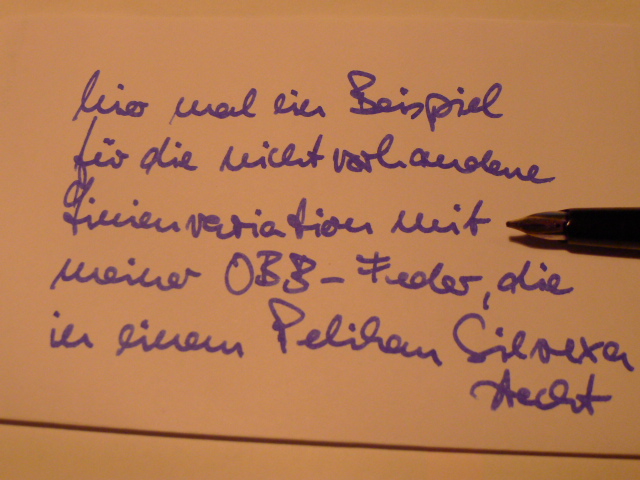 hier mal ein Beispiel
für die nichtvorhandene
Linienvariation mit
meiner OBB-Feder, die
in einem Pelikan Silvexa
steckt